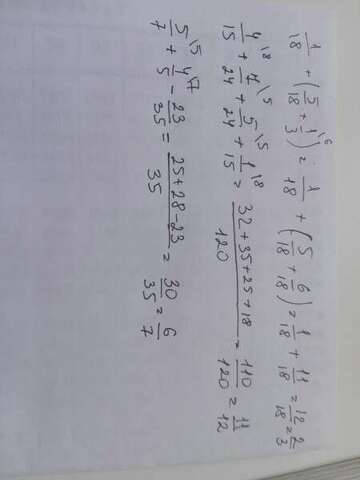 1/18 + (5/18 + 1/3\6) = 1/18 + (5/18 + 6/18) = 1/18 + 11/18 = 12/18 = 2/3
4/15\8 + 7/24\5 + 5/24\5 + 1/15\8 = 32+35+25+18/120 = 110/120 = 11/12
5/7\5 + 4/5\7 - 23/35 = 25+28-23/35 = 30/35 = 6/7